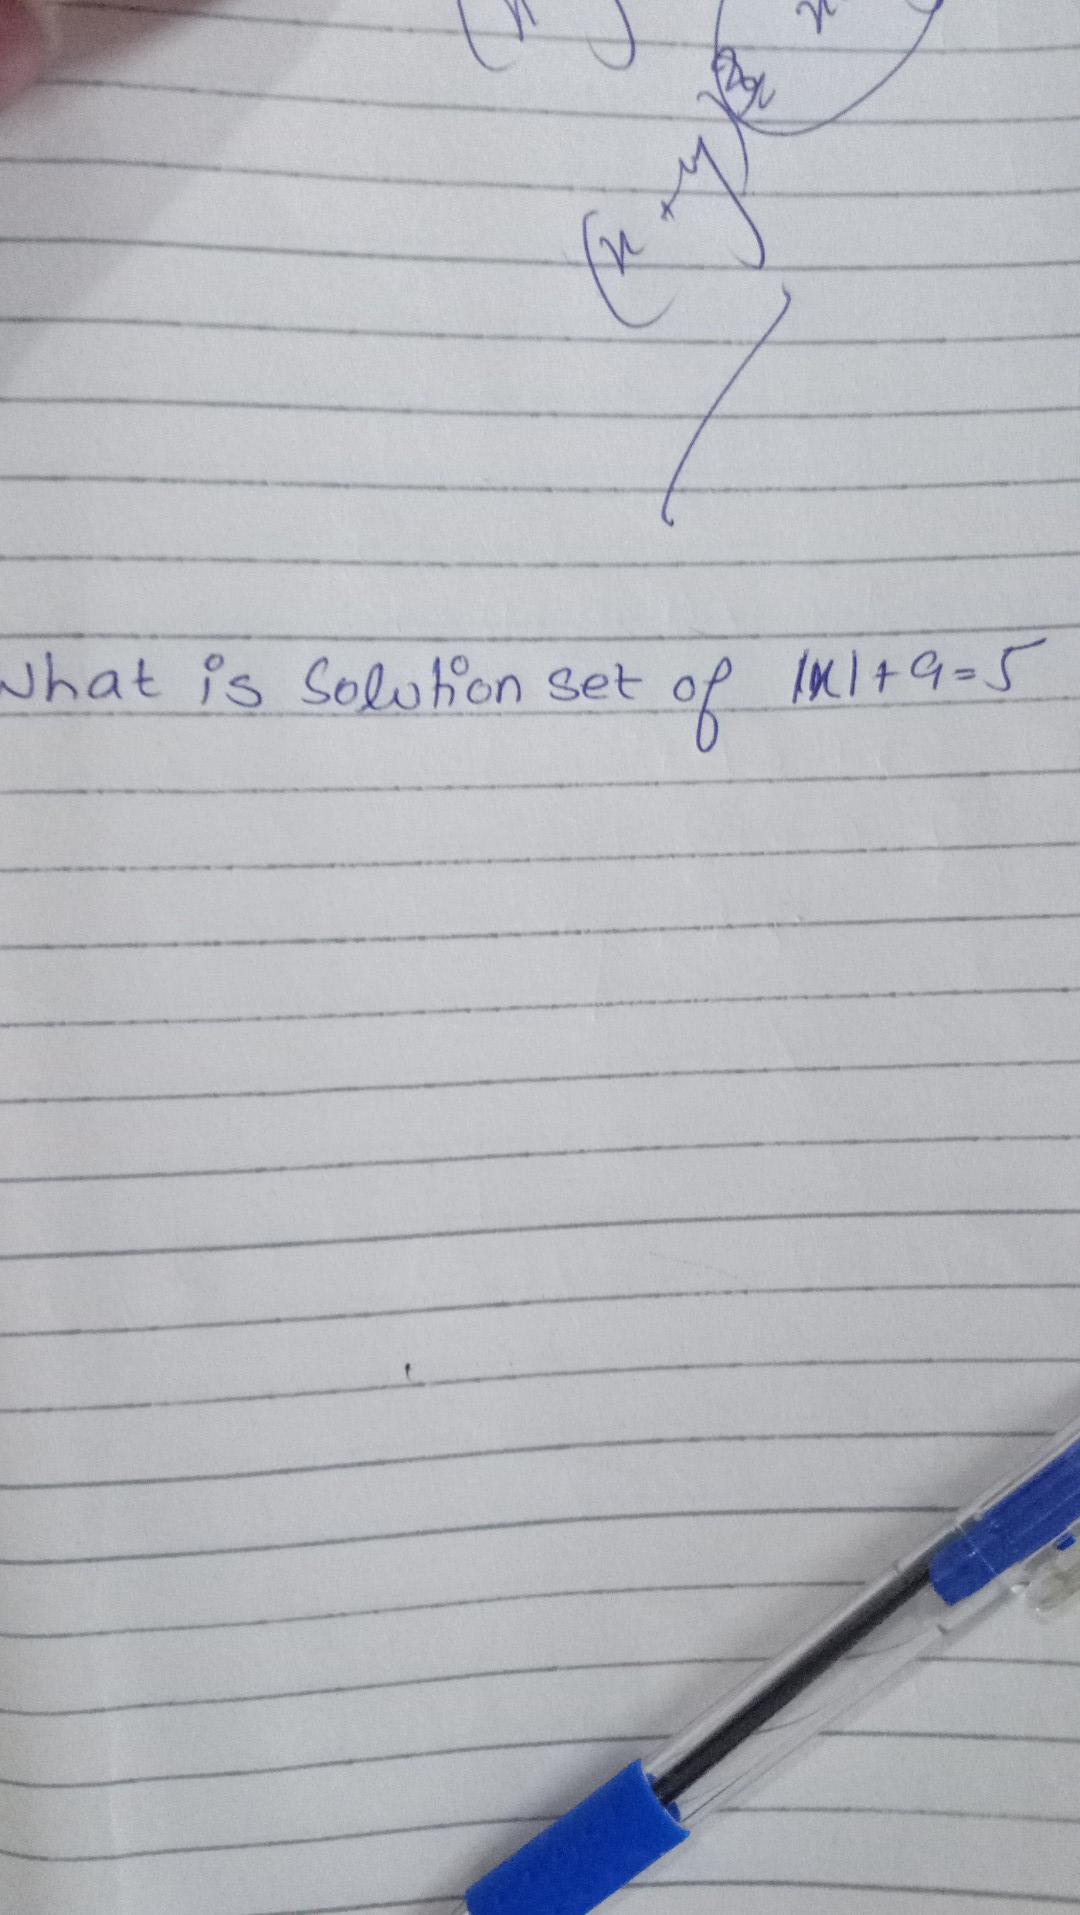 (x
x
2x
(x + y)
What is Solution set of |x| + 9 = 5